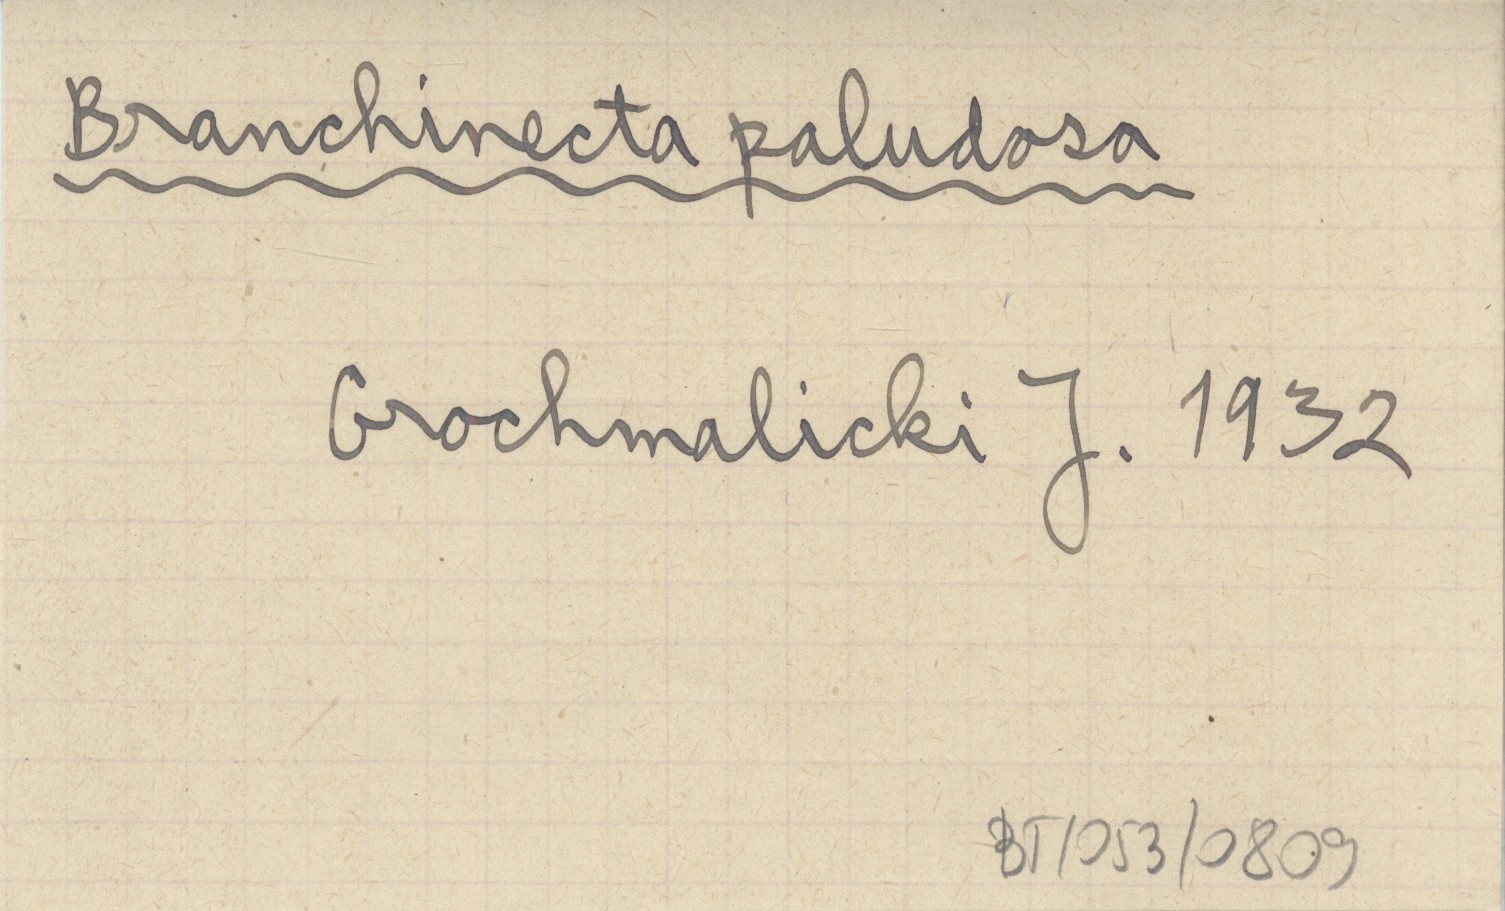 Branchinecta paludosa
Grochmalicki J. 1932
BT/053/0809